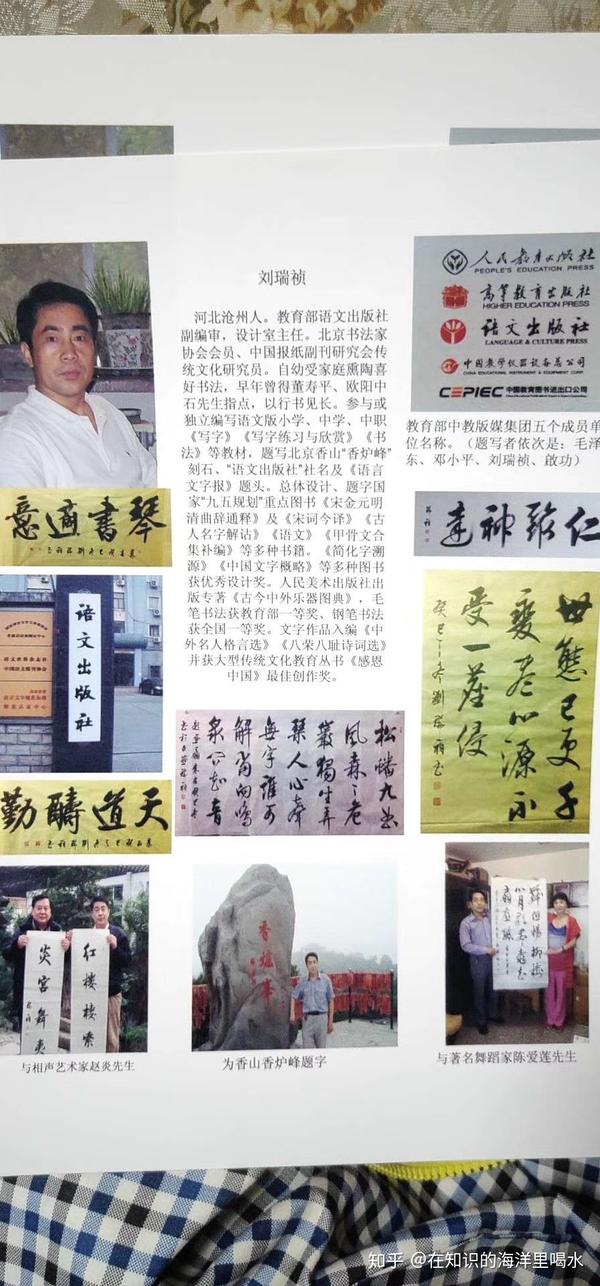 刘瑞祯
河北沧州人。教育部语文出版社
副编审，设计室主任。北京书法家
协会会员、中国报纸副刊研究会传
统文化研究员。自幼受家庭熏陶喜
好书法，早年曾得董寿平、欧阳中
石先生指点，以行书见长。参与或
独立编写语文版小学、中学、中职
《写字》《写字练习与欣赏》《书
法》等教材，题写北京香山“香炉峰”
刻石、“语文出版社”社名及《语言
文字报》题头。总体设计、题字国
家“九五规划”重点图书《宋金元明
清曲辞通释》及《宋词今译》《古
人名字解诂》《语文》《甲骨文合
集补编》等多种书籍。《简化字溯
源》《中国文字概略》等多种图书
获优秀设计奖。人民美术出版社出
版专著《古今中外乐器图典》，毛
笔书法获教育部一等奖、钢笔书法
获全国一等奖。文字作品入编《中
外名人格言选》《八荣八耻诗词选》
并获大型传统文化教育丛书《感恩
中国》最佳创作奖。
人民教育出版社
PEOPLE'S EDUCATION PRESS
高等教育出版社
HIGHER EDUCATION PRESS
语文出版社
LANGUAGE & CULTURE PRESS
中国教学仪器设备总公司
CHINA EDUCATIONAL INSTRUMENT & EQUIPMENT CORP.
CEPIEC 中国教育图书进出口公司
教育部中教版媒集团五个成员单
位名称。（题写者依次是：毛泽
东、邓小平、刘瑞祯、啟功）
琴書適意
仁敦神達
语文出版社
世態已更千
變盡心源不
受一塵侵
天道酬勤
松幡九曲
風森森危
巖獨坐弄
琴人心声
每字誰可
解當向鳴
泉以知音
炎宫舞炎
红楼楼索
香爐峯
与相声艺术家赵炎先生
为香山香炉峰题字
与著名舞蹈家陈爱莲先生
知乎 @在知识的海洋里喝水